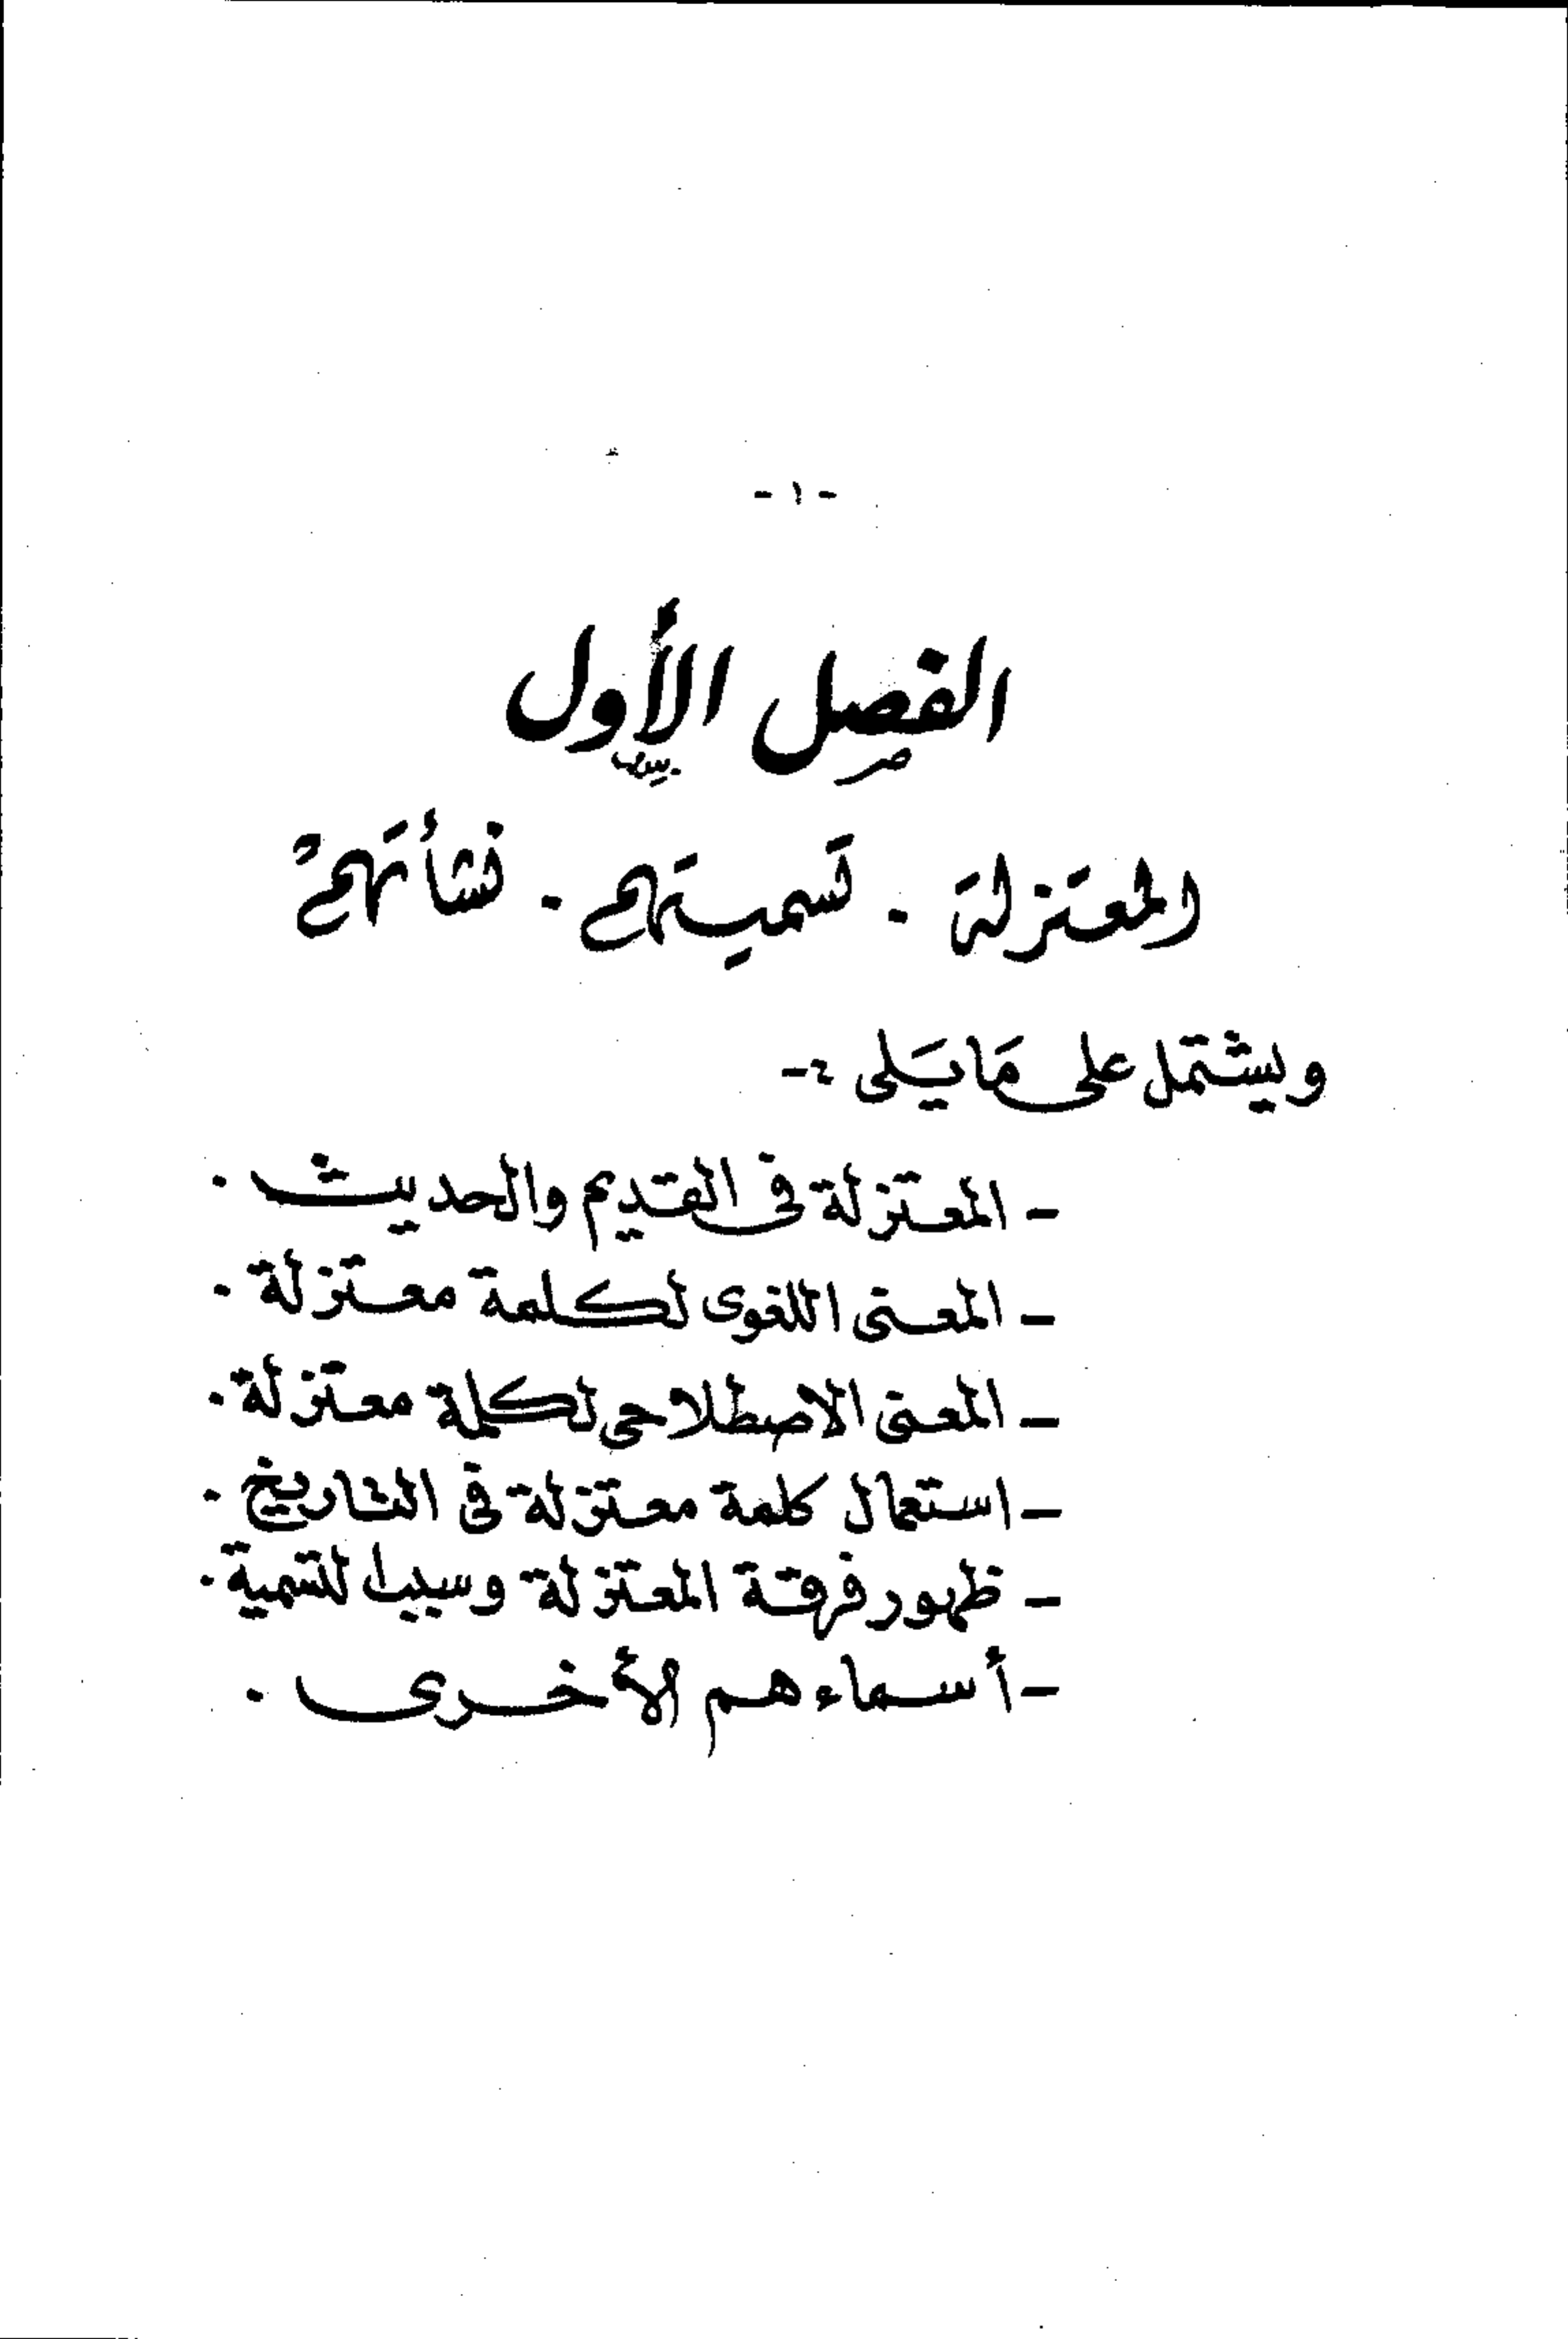 - ١ -
الفصل الأول
المعتزلة . تسميتهم . نشأتهم
ويشتمل على مَا يَلى :-
- المعتزلة فى القديم والحديث .
- المعنى اللغوى لكلمة معتزلة .
- المعنى الاصطلاحى لكلمة معتزلة .
- استعمال كلمة معتزلة فى التاريخ .
- ظهور فرقة المعتزلة وسبب التسمية .
- أسماءهم الأخرى .